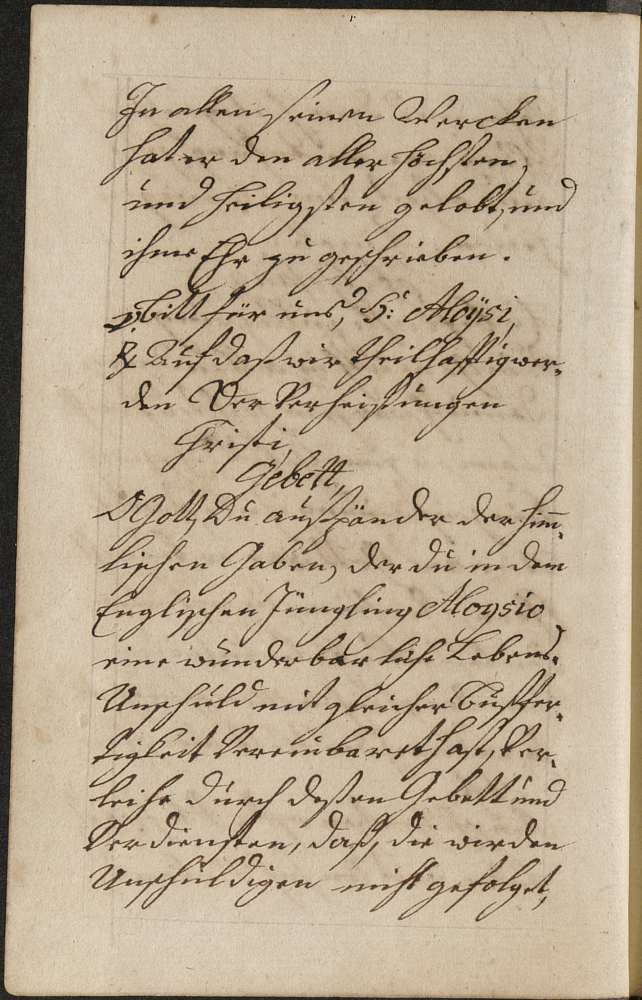 In allen seinen Wercken
hat er den aller höchsten,
und heiligsten gelobt, und
ihme Ehr zu geschrieben.
Bitt für uns, H: Aloÿsi,
℟ Auf daß wir theilhafftig wer-
den Der Verheissungen
Christi,
Gebett,
O Gott, Du außspänder der him̄-
lischen Gaben, der du in dem
Englischen Jüngling Aloysio
eine wunderbarliche Lebens-
Unschuld mit gleicher Bußfer-
tigkeit Vereinbaret hast, Ver-
leihe durch dessen Gebett und
Verdiensten, daß, die wir den
Unschuldigen nicht gefolget,